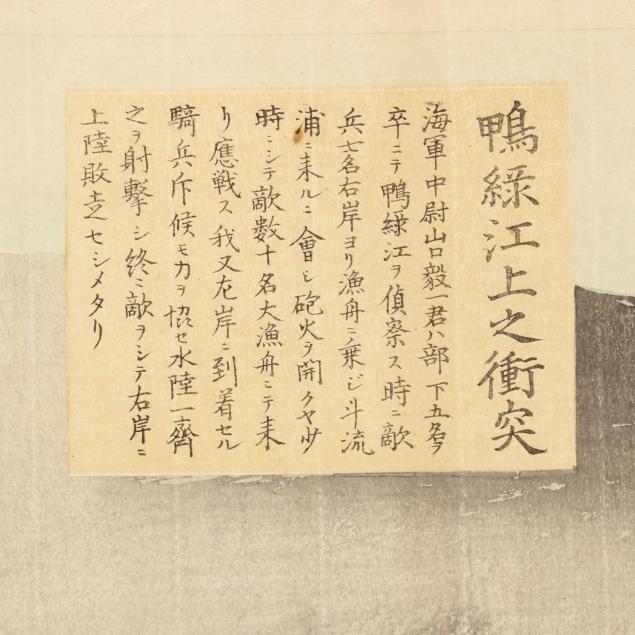 鴨綠江上之衝突
海軍中尉山口毅一君ハ部下五名ヲ
卒ニテ鴨綠江ヲ偵察ス時ニ敵
兵七名右岸ヨリ漁舟ニ乗ジ斗流
浦ニ来ルニ會シ砲火ヲ開クヤ少
時ニシテ敵数十名大漁舟ニテ来
リ應戦ス我又左岸ニ到着セル
騎兵斥候モカヲ協セ水陸一齊
之ヲ射撃シ終ニ敵ヲシテ右岸ニ
上陸敗走セシメタリ